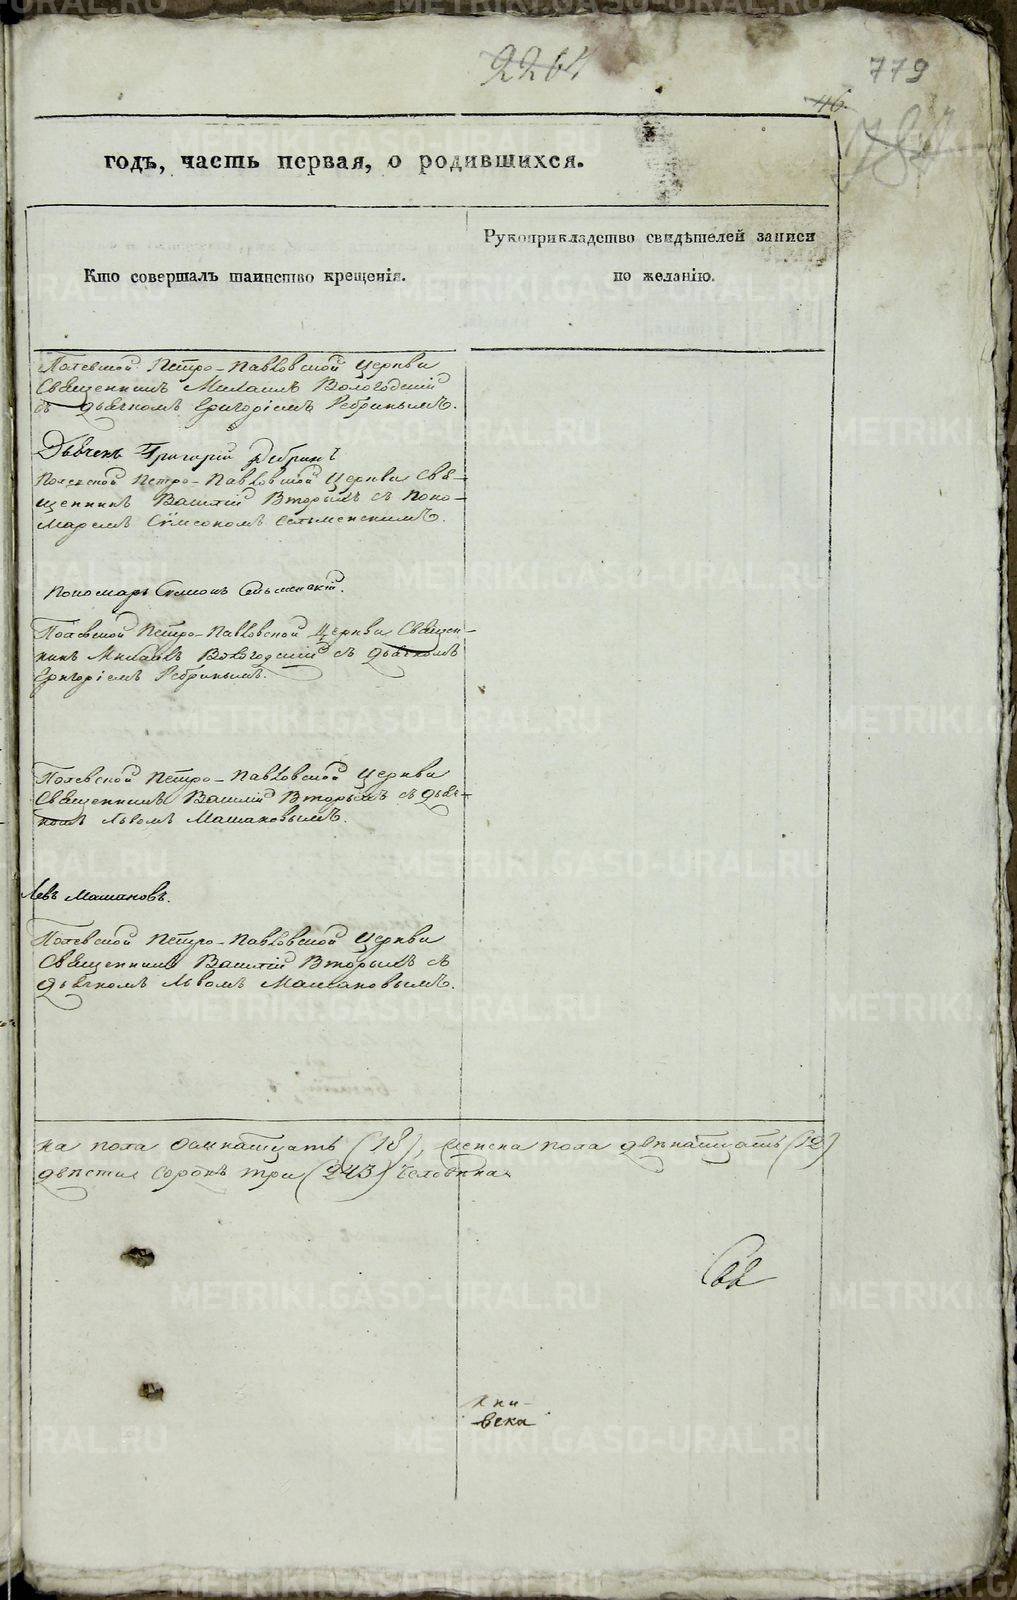 2264
779
46.
годъ, часть первая, о родившихся.
Кто совершалъ таинство крещенія.
Рукоприкладство свидѣтелей записи
по желанію.
Полевской Петро-Павловской Церкви
Священникъ Михаилъ Вологодский
съ Дьячкомъ Григоріемъ Ребринымъ.
Дьячекъ Григорий Ребринъ
Полевской Петро-Павловской Церкви Свя-
щенникъ Василій Вторыхъ съ Поно-
маремъ Сѵмеономъ Сельменскимъ.
Пономарь Сѵмеонъ Сельменскій.
Полевской Петро-Павловской Церкви Священ-
никъ Михаилъ Вологодский съ Дьячкомъ
Григоріемъ Ребринымъ.
Полевской Петро-Павловской Церкви
Священникъ Василій Вторыхъ съ Дьяч-
комъ Львомъ Машановымъ.
Левъ Машановъ.
Полевской Петро-Павловской Церкви
Священникъ Василій Вторыхъ съ
Дьячкомъ Львомъ Машановымъ.
ка пола осмнатцать (18), женска пола двѣнатцать (12)
двѣсти сорокъ три (243) человѣка
METRIKI.GASO-URAL.RU